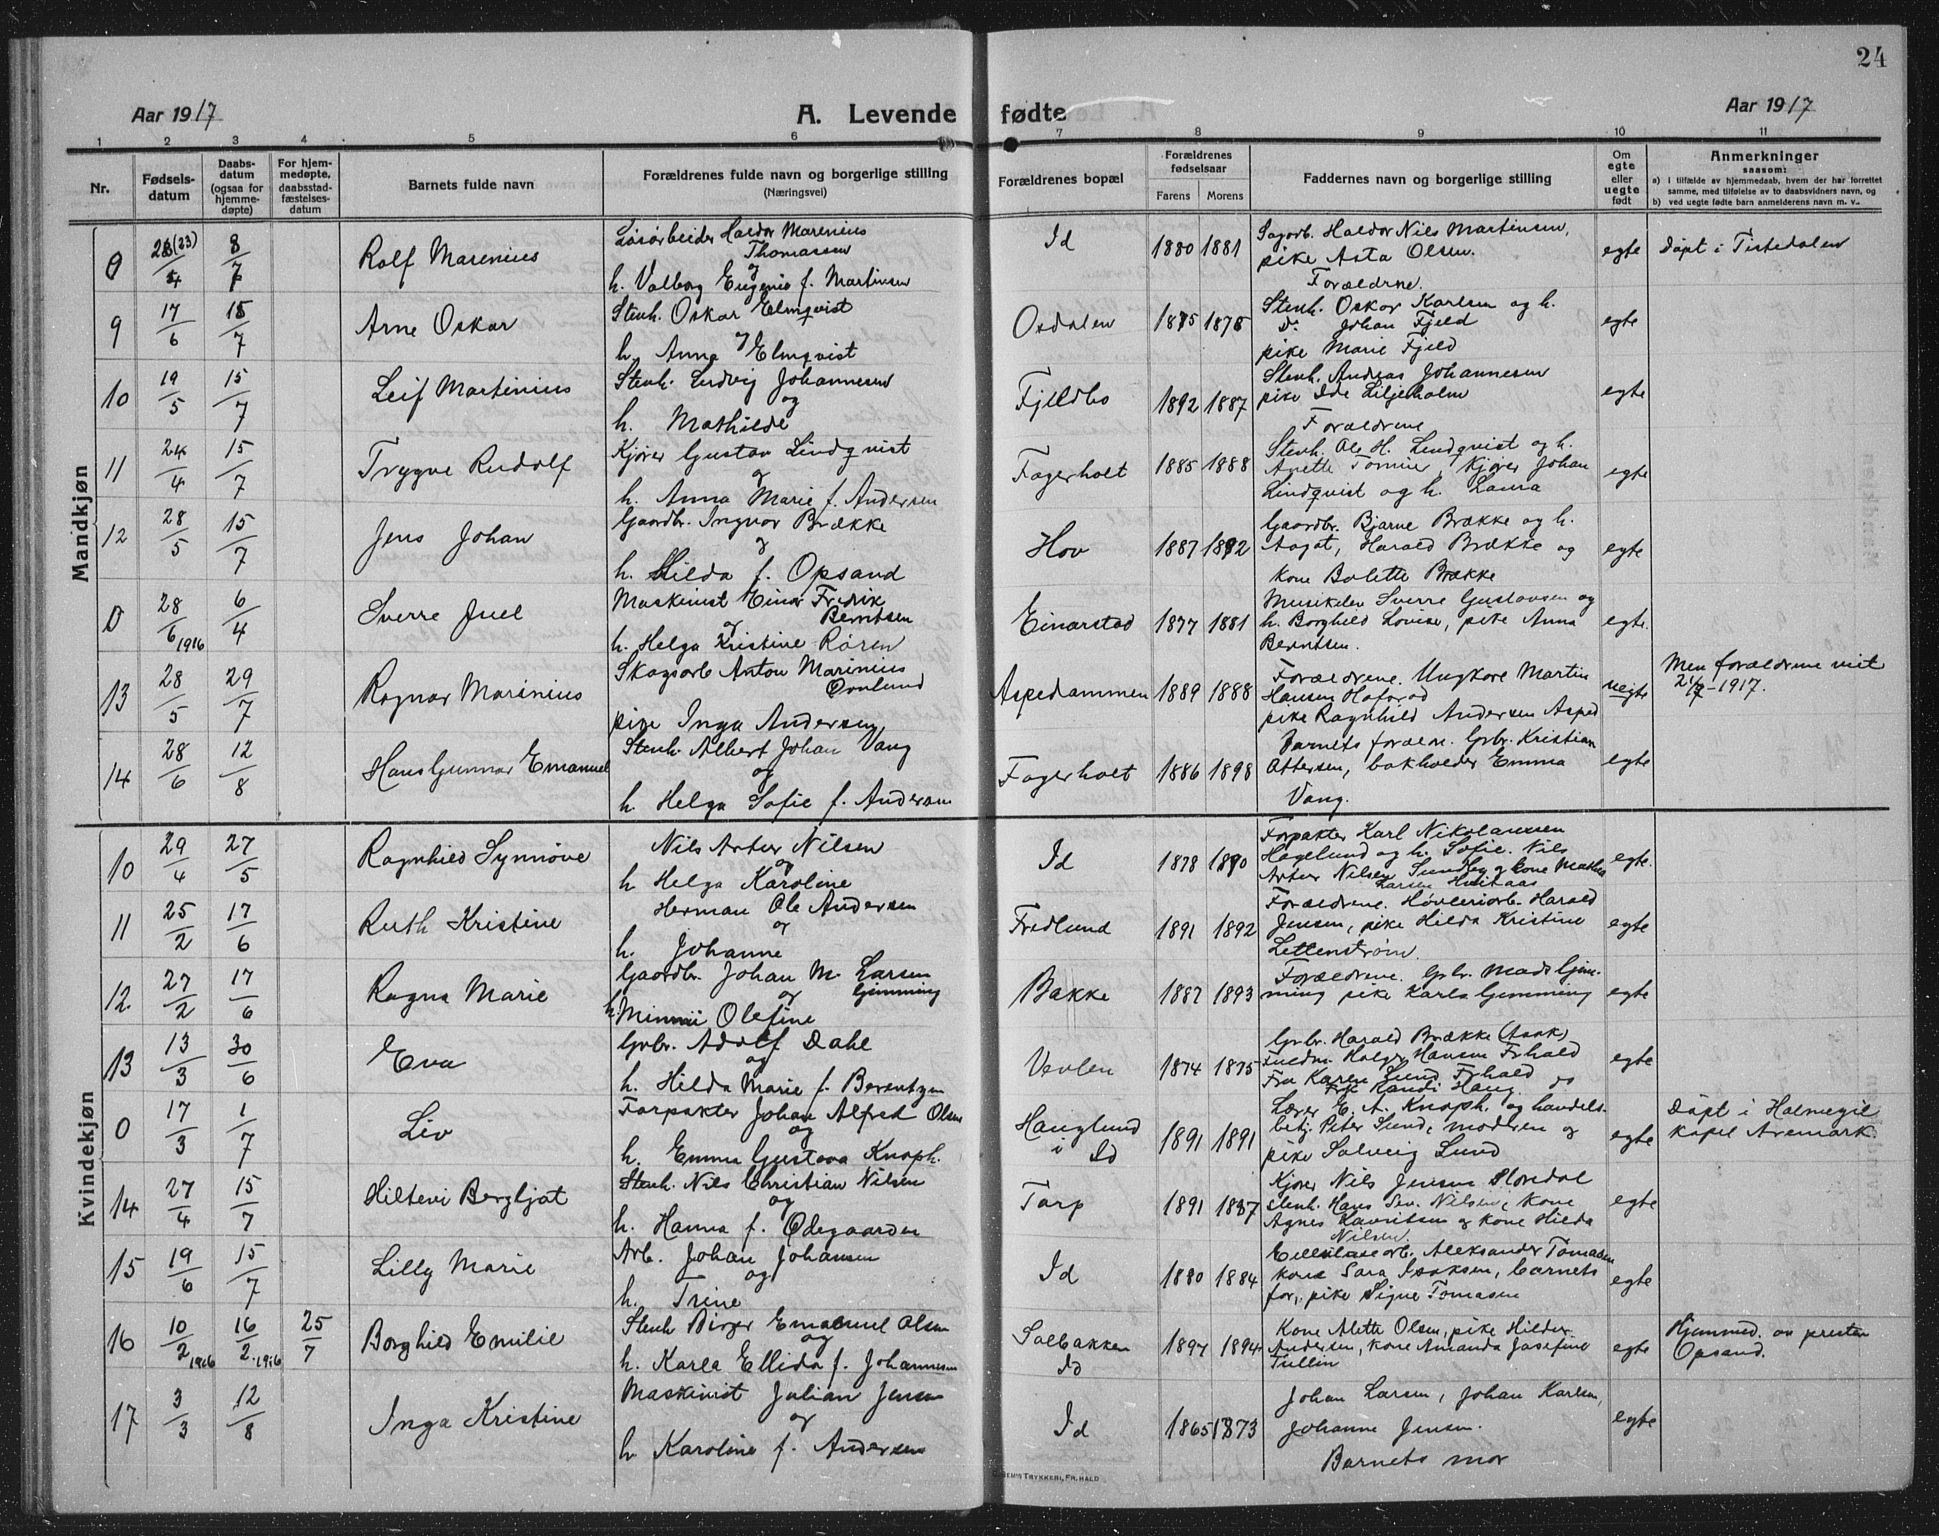 24
Aar 1917
A. Levende fødte
Aar 1917
1 2 3 4 5 6 7 8 9 10 11
Nr.
Fødsels-
datum
Daabs-
datum
(ogsaa for
hjemme-
døpte)
For hjem-
medøpte,
daabsstad-
fæstelses-
datum
Barnets fulde navn
Forældrenes fulde navn og borgerlige stilling
(Næringsvei)
Forældrenes bopæl
Forældrenes
fødselsaar
Farens Morens
Faddernes navn og borgerlige stilling
Om
egte
eller
uegte
født
Anmerkninger
saasom:
a) i tilfælde av hjemmedaab, hvem der har forrettet
samme, med tilføielse av to daabsvidners navn, og
b) ved uegte fødte barn anmelderens navn m. v..
Mandkjøn
0 8/7 Rolf Marenius
Løsarbeider Haldor Marenius
Thomassen
og
h. Valborg Eugenie f. Martinsen
Id 1880 1881
Sagarb. Haldor Nils Martinsen,
pike Asta Olsen.
Forældrene.
egte Døpt i Tistedalen
9 17/6 15/7 Arne Oskar
Stenh. Oskar Elmqvist
og
h. Anna Elmqvist
Osdalen 1875 1875
Stenh. Oskar Karlsen og h.
Do Johan Fjeld
pike Marie Fjeld
egte
10 19/5 15/7 Leif Martinius
Stenh. Ludvig Johannesen
og
h. Mathilde
Fjeldbo 1892 1887
Stenh. Andreas Johannesen
pike Ida Liljeholm
Forældrene
egte
11 24/4 15/7 Trygve Rudolf
Kjører Gustav Lindqvist
og
h. Anna Marie f. Andersen
Fagerholt 1885 1888
Stenh. Ole H. Lindqvist og h.
Anette Kjører Johan
Lindqvist og h. Laura
egte
12 28/5 15/7 Jens Johan
Gaardbr. Ingvar Brække
og
h. Hilda f. Opsand
Hov 1887 1892
Gaardbr. Bjarne Brække og h.
Aagot, Harald Brække og
kone Bolette Brække
egte
0 28/6 1916 6/4 Sverre Juel
Maskinist Einar Fredrik
Berntsen
og
h. Helga Kristine Røren
Einarstad 1877 1881
Musikeler Sverre Gustavsen og
h. Borghild Lovise, pike Anna
Berntsen.
egte.
13 28/5 29/7 Ragnar Marinius
Skogsarb Anton Marinius
og
pike Inga Andersen
Aspedammen 1889 1888
Forældrene. Ungkare Martin
Hansen
pike Ragnhild Andersen Asped
uegte
Men forældrene viet
1917.
14 28/6 12/8 Hans Gunnar Emanuel
Stenh. Albert Johan Vang
og
h. Helga Sofie f. Andersen
Fagerholt 1886 1898
Barnets foræld. Grbr. Kristian
Ottersen, bokholder Emma
Vang.
egte
Kvindekjøn
10 29/4 27/5 Ragnhild Synnøve
Nils Artur Nilsen
og
h Helga Karoline
Id 1878 1890
Forpakter Karl Nikolaussen
Hagelund og h. Sofie. Nils
Artur Nilsen Sundby og kone
Larsen
egte.
11 25/2 17/6 Ruth Kristine
Herman Ole Andersen
og
h. Johanne
Fredlund 1891 1892
Forældrene. Høvleriarb. Harald
Jensen, pike Hilda Kristine
Lettenstrøm.
egte
12 27/2 17/6 Ragna Marie
Gaardbr. Johan M. Larsen
Gimming
og
h. Minni Olefine
Bakke 1887 1893
Forældrene. Grbr. Mads Gim-
ming pike Karla Gimming
egte
13 13/3 30/6 Eva
Grbr. Adolf Dahl
og
h. Hilda Marie f. Berentzen
Vevlen 1874 1875
Grbr. Harald Brække (Asak)
Fuldm. Holger Hansen Frhald
Fru Karen Lund Frhald
Frk Randi Haug
egte
0 17/3 1/7 Liv
Forpakter Johan Alfred Olsen
og
h. Emma Gustava Knoph.
Hauglund
i Id
1891 1891
Lærer E. A. Knoph. og handels-
betj. Peter Lund, moderen og
pike Solveig Lund
egte
Døpt i Holmegil
kapel Aremark.
14 27/4 15/7 Hiltevi Bergljot
Stenh. Nils Christian Nilsen
og
h. Hanna f. Ødegaarden
Torp 1891 1887
Kjører Nils Jensen
stenh. Hans Sev. Nilsen, kone
Agnes Lauritsen og kone Hilda
Nilsen
egte
15 19/6 15/7 Lilly Marie
Arb. Johan Johansen
og
h. Trine
Id 1880 1884
Aleksander Tomasen
kone Sara Isaksen, barnets
for., pike Signe Tomasen
egte
16 10/2 1916 16/2 1916 25/7 Borghild Emilie
Stenh Birger Emanuel Olsen
og
h. Karla Ellida f. Johannesen
Solbakken
Id
1897 1894
Kone Alette Olsen, pike Hilder
Andersen, kone Amanda Josefine
Tullin
egte
Hjemmed. av presten
Opsand.
17 3/3 12/8 Inga Kristine
Maskinist Julian Jensen
og
h Karoline f. Andersen
Id 1865 1873
Johan Larsen, Johan Karlsen,
Johanne Jensen.
Barnets mor
egte
TRYKKERI, FR.HALD